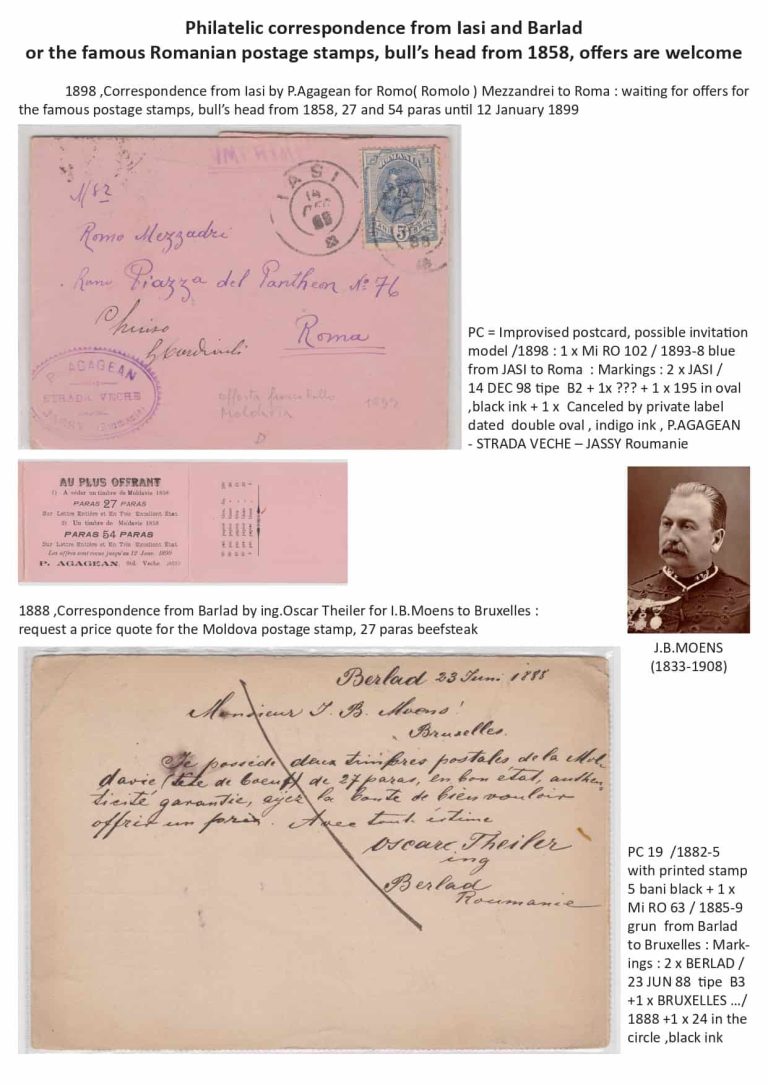 Philatelic correspondence from Iasi and Barlad
or the famous Romanian postage stamps, bull's head from 1858, offers are welcome
1898 ,Correspondence from Iasi by P.Agagean for Romo( Romolo ) Mezzandrei to Roma : waiting for offers for
the famous postage stamps, bull's head from 1858, 27 and 54 paras until 12 January 1899
IMPRIMÉ
IASI
14
DEC
98
ROMANIA
5
No 82
Romo Mezzadri
Piazza del Pantheon No 76
Chiuso
Roma
P. AGAGEAN
STRADA VECHE
JASSY (Roumanie)
offerta francobollo
Moldavia
1899
PC = Improvised postcard, possible invitation
model /1898 : 1 x Mi RO 102 / 1893-8 blue
from JASI to Roma : Markings : 2 x JASI /
14 DEC 98 tipe B2 + 1x ??? + 1 x 195 in oval
,black ink + 1 x Canceled by private label
dated double oval , indigo ink , P.AGAGEAN
- STRADA VECHE – JASSY Roumanie
AU PLUS OFFRANT
1) A céder un timbre de Moldavie 1858
PARAS 27 PARAS
Sur Lettre Entière et En Très Excellent Etat
2) Un timbre de Moldavie 1858
PARAS 54 PARAS
Sur Lettre Entière et En Très Excellent Etat
Les offres sont reçue jusqu'au 12 Janv. 1899
P. AGAGEAN, Std. Veche
1888 ,Correspondence from Barlad by ing.Oscar Theiler for I.B.Moens to Bruxelles :
request a price quote for the Moldova postage stamp, 27 paras beefsteak
J.B.MOENS
(1833-1908)
Berlad 23 Juni 1888
Monsieur J. B. Moens!
Bruxelles.
Je possède deux timbres postales de la Mol-
davie (tête de boeuf) de 27 paras, en bon état, authen-
ticité garantie, ayez la bonté de bien vouloir
offrir un prix. Avec tout éstime
Oscare Theiler
ing
Berlad
Roumanie
PC 19 /1882-5
with printed stamp
5 bani black + 1 x
Mi RO 63 / 1885-9
grun from Barlad
to Bruxelles : Mark-
ings : 2 x BERLAD /
23 JUN 88 tipe B3
+1 x BRUXELLES .../
1888 +1 x 24 in the
circle ,black ink